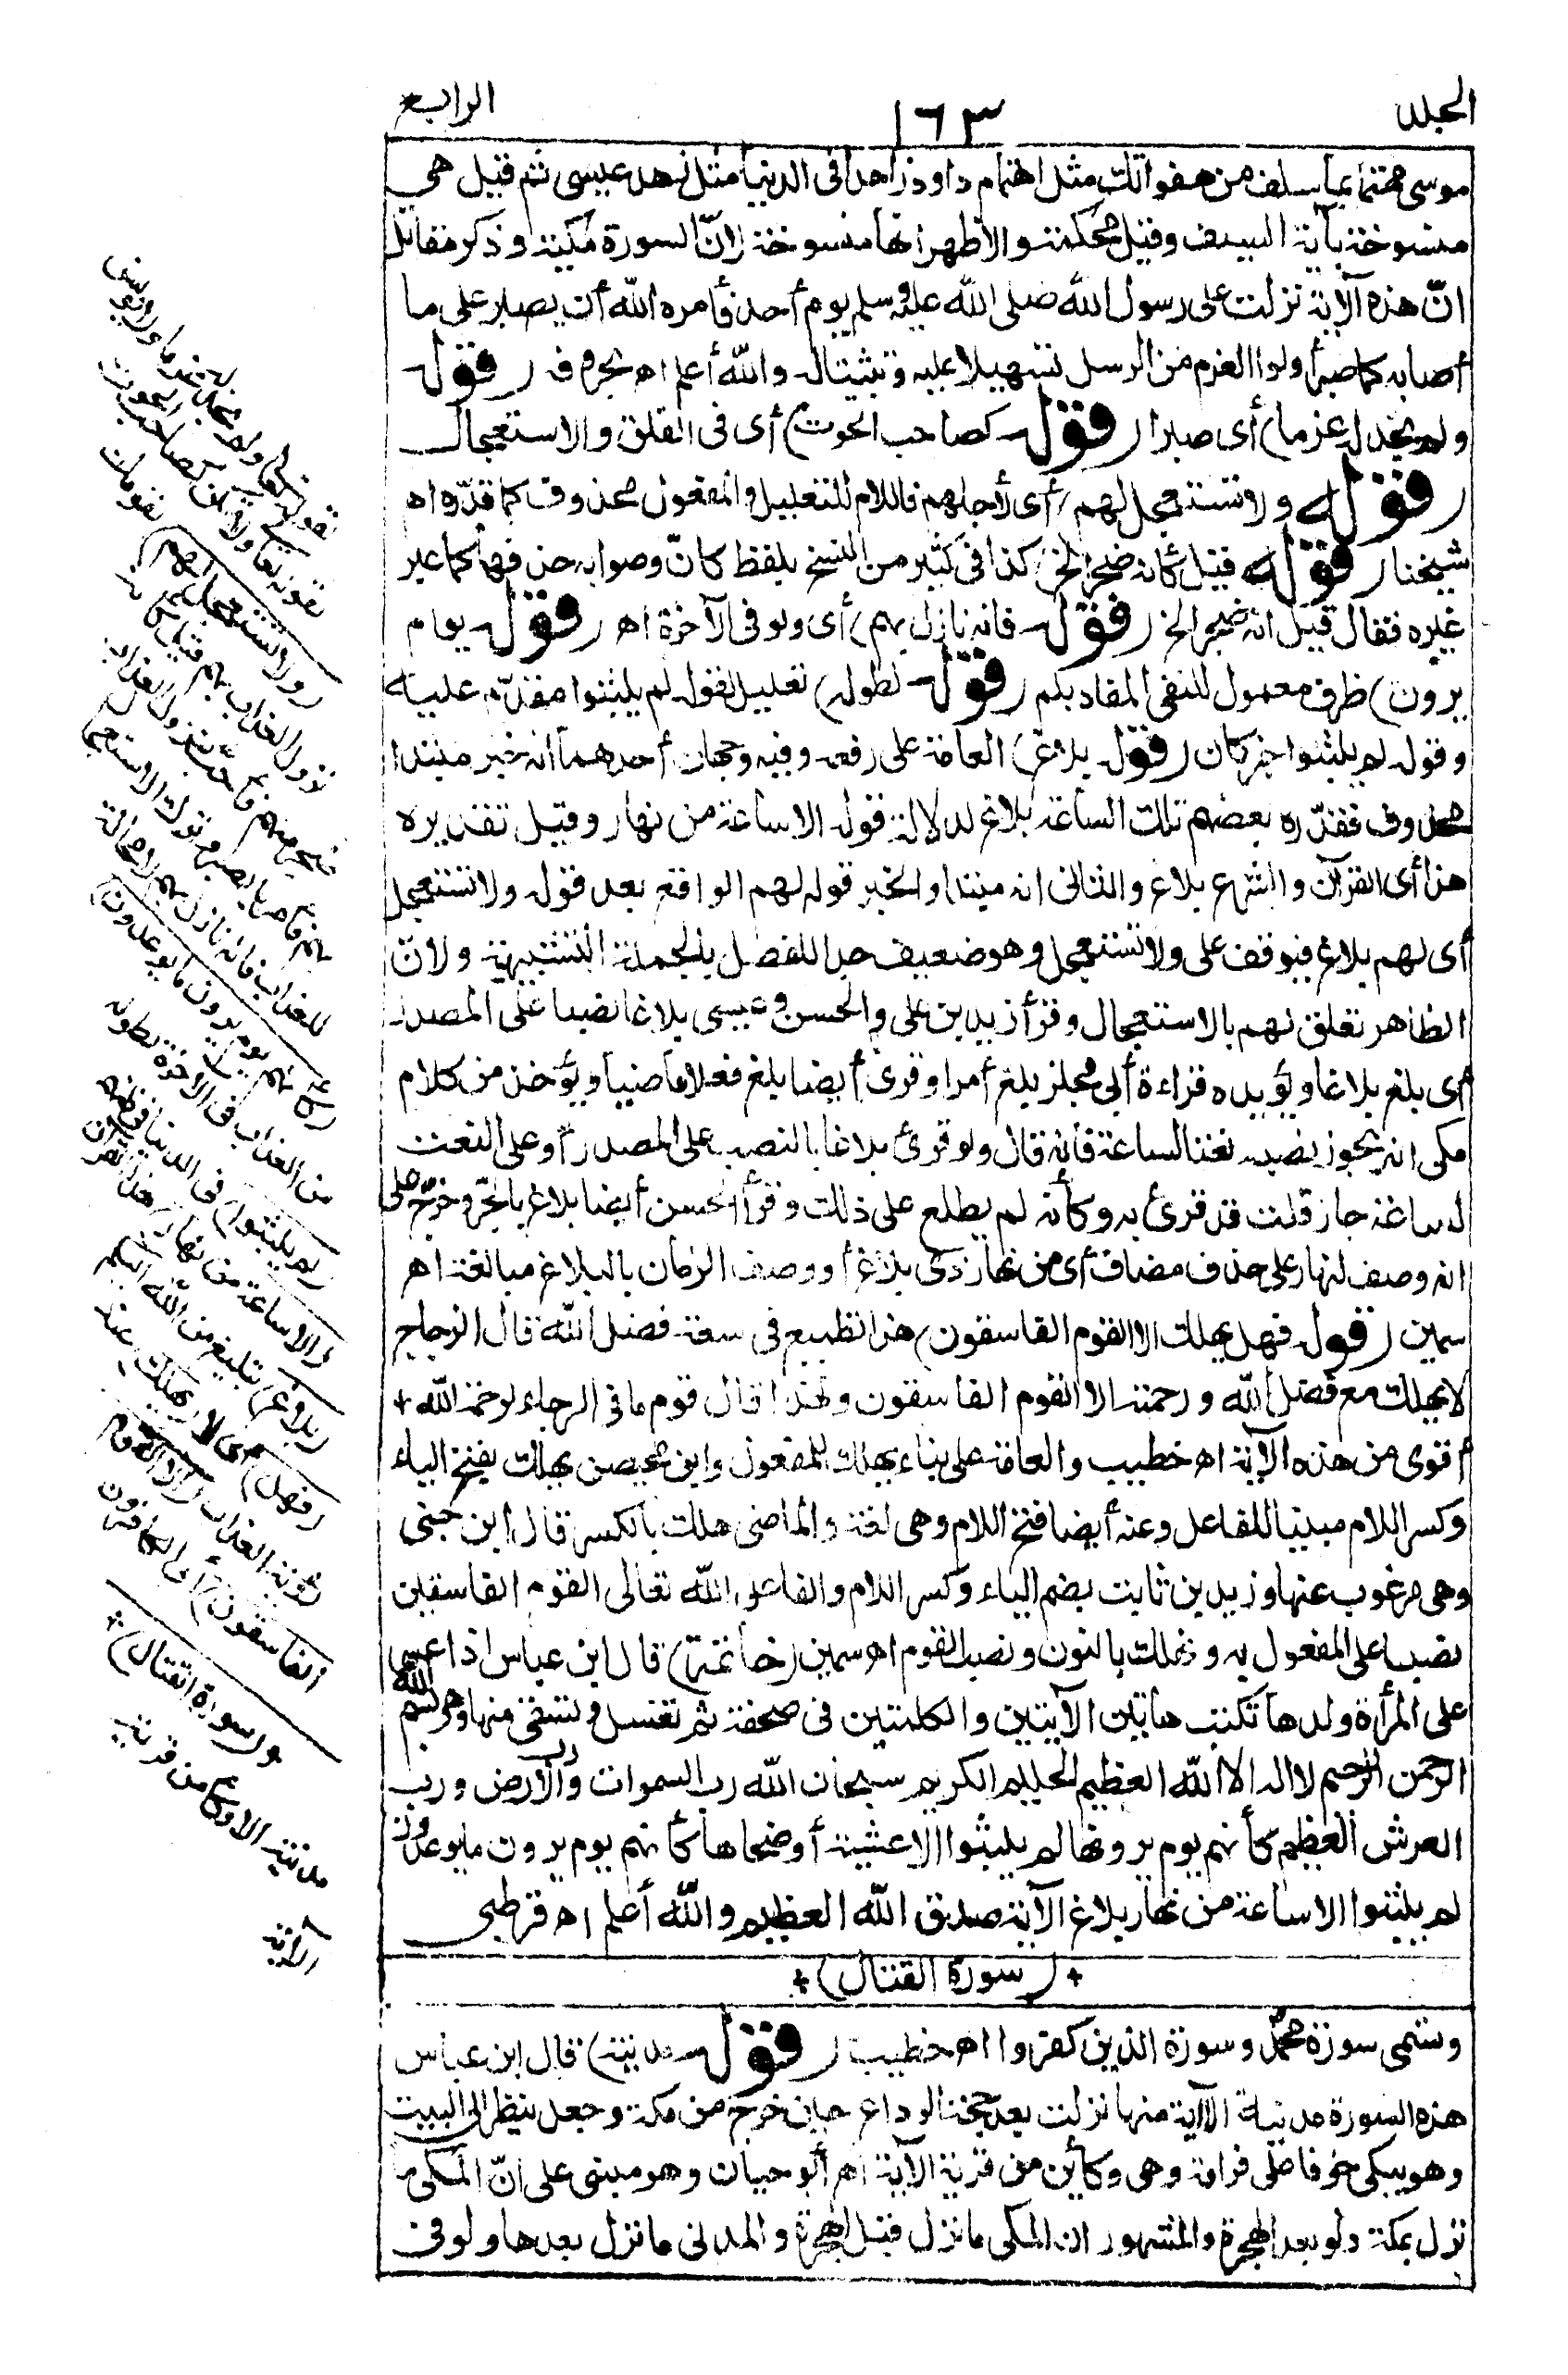 الجلد
١٦٣
الرابع
موسى مهتما بما سلف من هفواتك مثل اهتمام داود زاهدا فى الدنيا مثل زهد عيسى ثم قيل هى
منسوخة بآية السيف وقيل محكمة والاظهر انها منسوخة لانّ السورة مكية وذكر مقاتل
انّ هذه الآية نزلت على رسول الله صلى الله عليه وسلم يوم أحد فأمره الله أن يصبر على ما
أصابه كما صبر أولوا العزم من الرسل تسهيلا عليه وتثبيتاله والله أعلم اه بحروفه (قوله
ولم نجد له عزما) أى صبرا (قوله كصاحب الحوت) أى فى القلق والاستعجال
(قوله ولا تستعجل لهم) أى لأجلهم فاللام للتعليل والمفعول محذوف كما قدّره اه
شيخنا (قوله قيل كأنه ضجر الخ) كذا فى كثير من النسخ بلفظ كانّ وصوابه حذفها كما عبر
غيره فقال قيل انه ضجر الخ (قوله فانه نازل بهم) أى ولو فى الآخرة اه (قوله يوم
يرون) ظرف معمول للنفى المفاد بلم (قوله لطوله) تعليل لقوله لم يلبثوا مقدّم عليه
وقوله لم يلبثوا خبر كان (قوله بلاغ) العامة على رفعه وفيه وجهان أحدهما انه خبر مبتدا
محذوف فقدّره بعضهم تلك الساعة بلاغ لدلالة قوله الا ساعة من نهار وقيل تقديره
هذا أى القرآن والشرع بلاغ والثانى انه مبتدا والخبر قوله لهم الواقع بعد قوله ولا تستعجل
أى لهم بلاغ فيوقف على ولا تستعجل وهو ضعيف جدا للفصل بالجملة التشبيهية ولانّ
الظاهر تعلق لهم بالاستعجال وقرأ زيد بن على والحسن وعيسى بلاغا نصبا على المصدر
أى بلغ بلاغا ويؤيده قراءة أبى مجلز بلغ أمرا وقرئ أيضا بلغ فعلا ماضيا ويؤخذ من كلام
مكى انه يجوز نصبه نعتا لساعة فانه قال ولو قرئ بلاغا بالنصب على المصدر أو على النعت
لساعة جاز قلت قد قرئ به وكأنه لم يطلع على ذلك وقرأ الحسن أيضا بلاغ بالجرّ وخرّج على
انه وصف لنهار على حذف مضاف أى من نهار ذى بلاغ أو وصف الزمان بالبلاغ مبالغة اه
سمين (قوله فهل يهلك الا القوم الفاسقون) هذا تطبيع فى سعة فضل الله قال الزجاج
لا يهلك مع فضل الله ورحمته الا القوم الفاسقون ولهذا قال قوم ما فى الرجاء لرحمة الله
أقوى من هذه الآية اه خطيب والعامة على بناء يهلك للمفعول وابن محيصن يهلك بفتح الياء
وكسر اللام مبنيا للفاعل وعنه أيضا فتح اللام وهى لغة والماضى هلك بالكسر قال ابن جنى
وهى مرغوب عنها وزيد بن ثابت بضم الياء وكسر اللام والفاعل الله تعالى القوم الفاسقين
نصبا على المفعول به ونهلك بالنون ونصب القوم اه سمين (خاتمة) قال ابن عباس اذا عسر
على المرأة ولدها تكتب هاتين الآيتين والكلمتين فى صحفة ثم تغسل وتسقى منها وهى بسم الله
الرحمن الرحيم لا اله الا الله العظيم الحليم الكريم سبحان الله رب السموات ورب الأرض ورب
العرش العظيم كأنهم يوم يرونها لم يلبثوا الا عشية أو ضحاها كأنهم يوم يرون ما يوعدون
لم يلبثوا الا ساعة من نهار بلاغ الآية صدق الله العظيم والله أعلم اه قرطبى
(سورة القتال)
وتسمى سورة محمد وسورة الذين كفروا اه خطيب (قوله مدنية) قال ابن عباس
هذه السورة مدنية الا آية منها نزلت بعد حجة الوداع حين خرج من مكة وجعل ينظر الى البيت
وهو يبكى خوفا على فراقه وهى وكأين من قرية الآية اه أبو حيان وهو مبنى على انّ المكى ما
نزل بمكة ولو بعد الهجرة والمشهور ان المكى ما نزل قبل الهجرة والمدنى ما نزل بعدها ولو فى
كصاحب الحوت
(ولا تستعجل لهم) لقومك
نزول العذاب بهم قيل كأنه
ضجر منهم فأحبّ نزول العذاب
بهم فأمر بالصبر وترك الاستعجال
للعذاب فانه نازل بهم لا محالة
(كأنهم يوم يرون ما يوعدون)
من العذاب فى الآخرة لطوله
(لم يلبثوا) فى الدنيا فى ظنهم
(الا ساعة من نهار) هذا القرآن
(بلاغ) تبليغ من الله اليكم
(فهل) أى لا (يهلك) عند
رؤية العذاب (الا القوم
الفاسقون) أى الكافرون
(سورة القتال)
مدنية الا وكأين من قرية
الآية